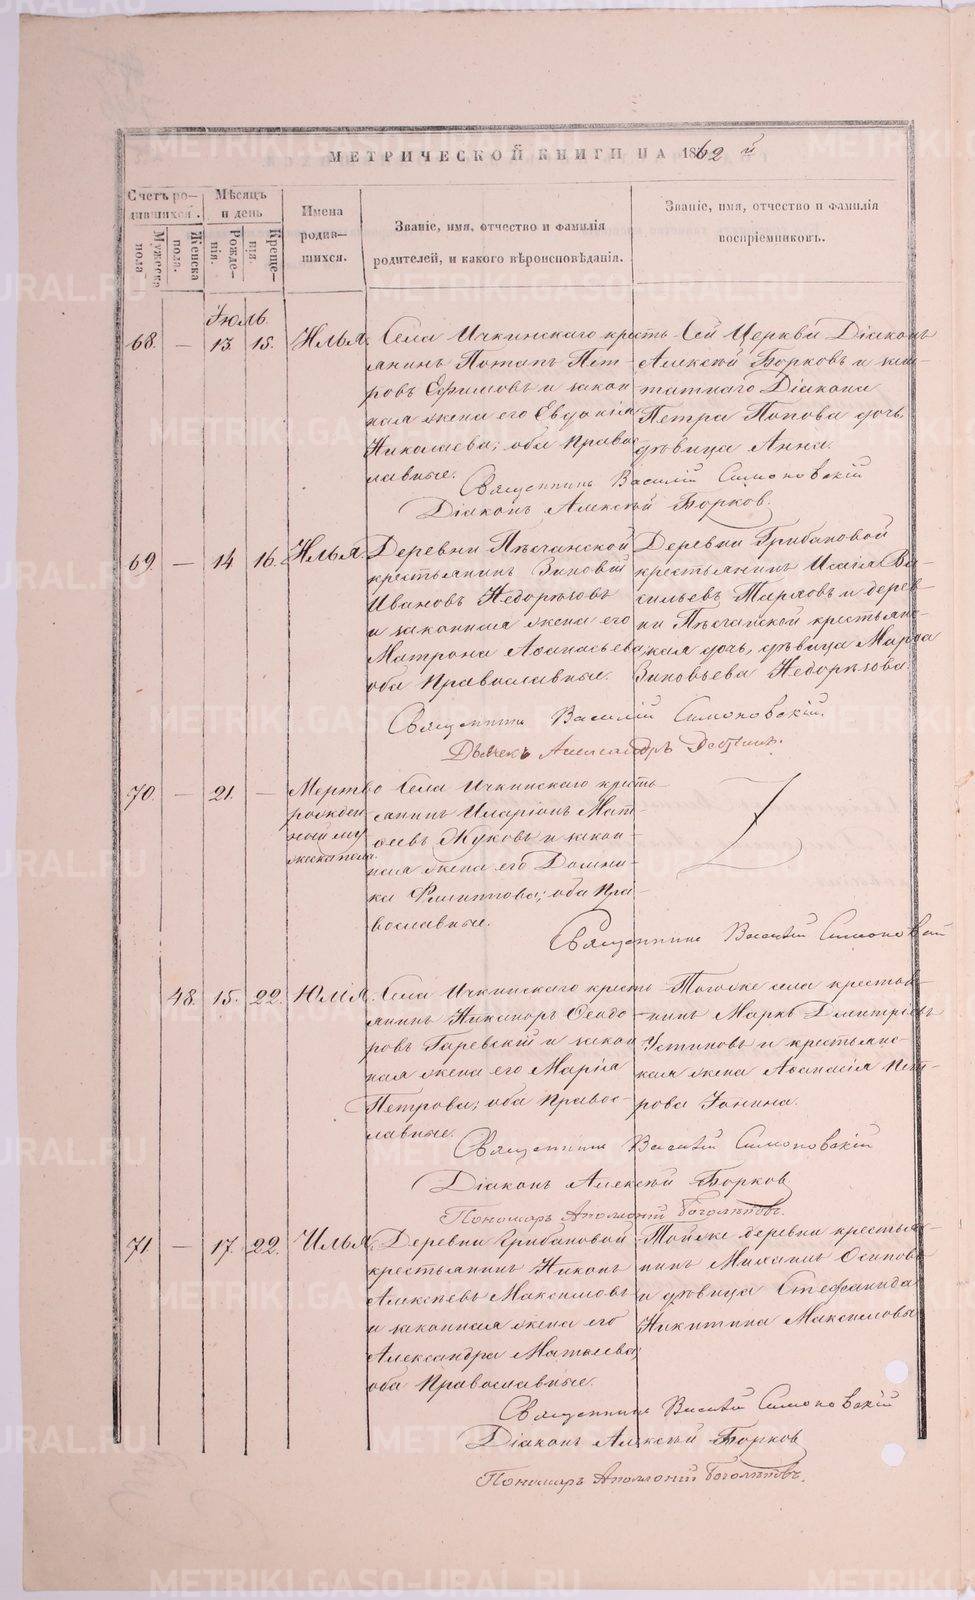 МЕТРИЧЕСКОЙ КНИГИ НА 1862 й
Счетъ ро-
дившихся.
Мужеска
пола.
Женска
пола.
Мѣсяцъ
и день
Рожде-
нія.
Креще-
нія.
Имена
родив-
шихся.
Званіе, имя, отчество и фамилія
родителей, и какого вѣроисповѣданія.
Званіе, имя, отчество и фамилія
воспріемниковъ.
Іюль.
68. — 13. 15. Илья.
Села Ичкинскаго кресть
янинъ Потапъ Пет-
ровъ Ефимовъ и закон
ная жена его Евдокія
Николаева; оба Правос
лавные.
Сей Церкви Діаконъ
Алексѣй Борковъ и заш-
татнаго Діакона
Петра Попова дочь
дѣвица Анна.
Священникъ Василій Симоновскій
Діаконъ Алексѣй Борков
69. — 14 16. Илья.
Деревни Пѣсчанской
крестьянинъ Зиновій
Ивановъ Недорѣзовъ
и законная жена его
Матрона Аѳанасьева,
оба Православные.
Деревни Грибановой
крестьянинъ Исаія Ва-
сильевъ и дерев
ни Пѣсчанской крестьянс-
кая дочь, дѣвица Марѳа
Зиновьева Недорѣзова.
Священникъ Василій Симоновскій.
Дьячекъ Александръ
70. — 21. —
Мертво
рожден
ный му
жеска пола.
Села Ичкинскаго кресть-
янинъ Иларіонъ Мат-
ѳеевъ Жуковъ и закон-
ная жена его Домни-
ка Филиппова; оба Пра-
вославные.
Священникъ Василій Симоновскій
48. 15. 22. Юлія.
Села Ичкинскаго кресть
янинъ Никаноръ Ѳеодо-
ровъ Гаревскій и закон
ная жена его Марія
Петрова; оба Правос-
лавные.
Тогоже села крестья-
нинъ Маркъ Дмитріевъ
Устиновъ и крестьянс-
кая жена Аѳанасія Пет-
рова Іонина.
Священникъ Василій Симоновскій
Діаконъ Алексѣй Борков
Пономарь Аполлоній Боголѣповъ.
71. — 17. 22. Илья.
Деревни Грибановой
крестьянинъ Никонъ
Алексѣевъ Максимовъ
и законная жена его
Александра Матѳеева;
оба Православные.
Тойже деревни крестья-
нинъ Михаилъ Осиповъ
и дѣвица Стефанида
Никитина Максимовы
Священникъ Василій Симоновскій
Діаконъ Алексѣй Борков
Пономарь Аполлоній Боголѣповъ.
METRIKI.GASO-URAL.RU